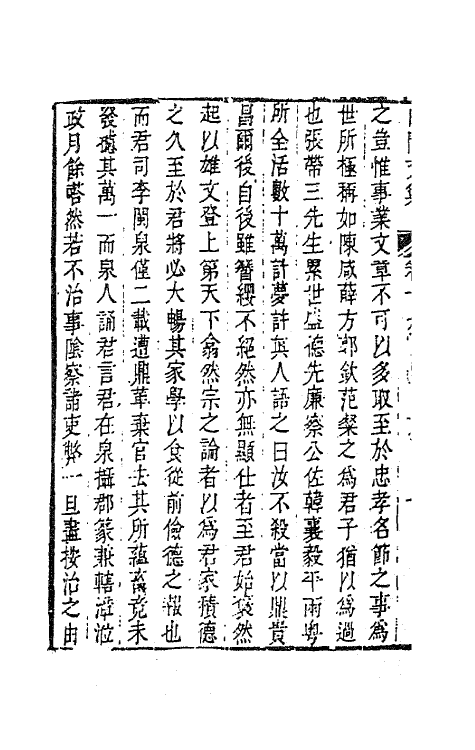 之豈惟事業文章不可以多取至於忠孝名節之事為
世所極稱如陳咸薛方郭欽范粲之為君子猶以為過
也張帶三先生累世盛德先廉察公佐韓襄毅平兩粤
所全活數十萬計夢許與人語之曰汝不殺當以鼎貴
昌爾後自後雖簪纓不絕然亦無顯仕者至君始裒然
起以雄文登上第天下翕然宗之論者以為君家積德
之久至於君將必大暢其家學以食從前儉德之報也
而君司李閩泉僅二載遭鼎革棄官去其所蘊畜竟未
發攄其萬一而泉人誦君言君在泉攝郡篆兼轄涖
政月餘嗒然若不治事陰察諸吏弊一旦盡按治之由